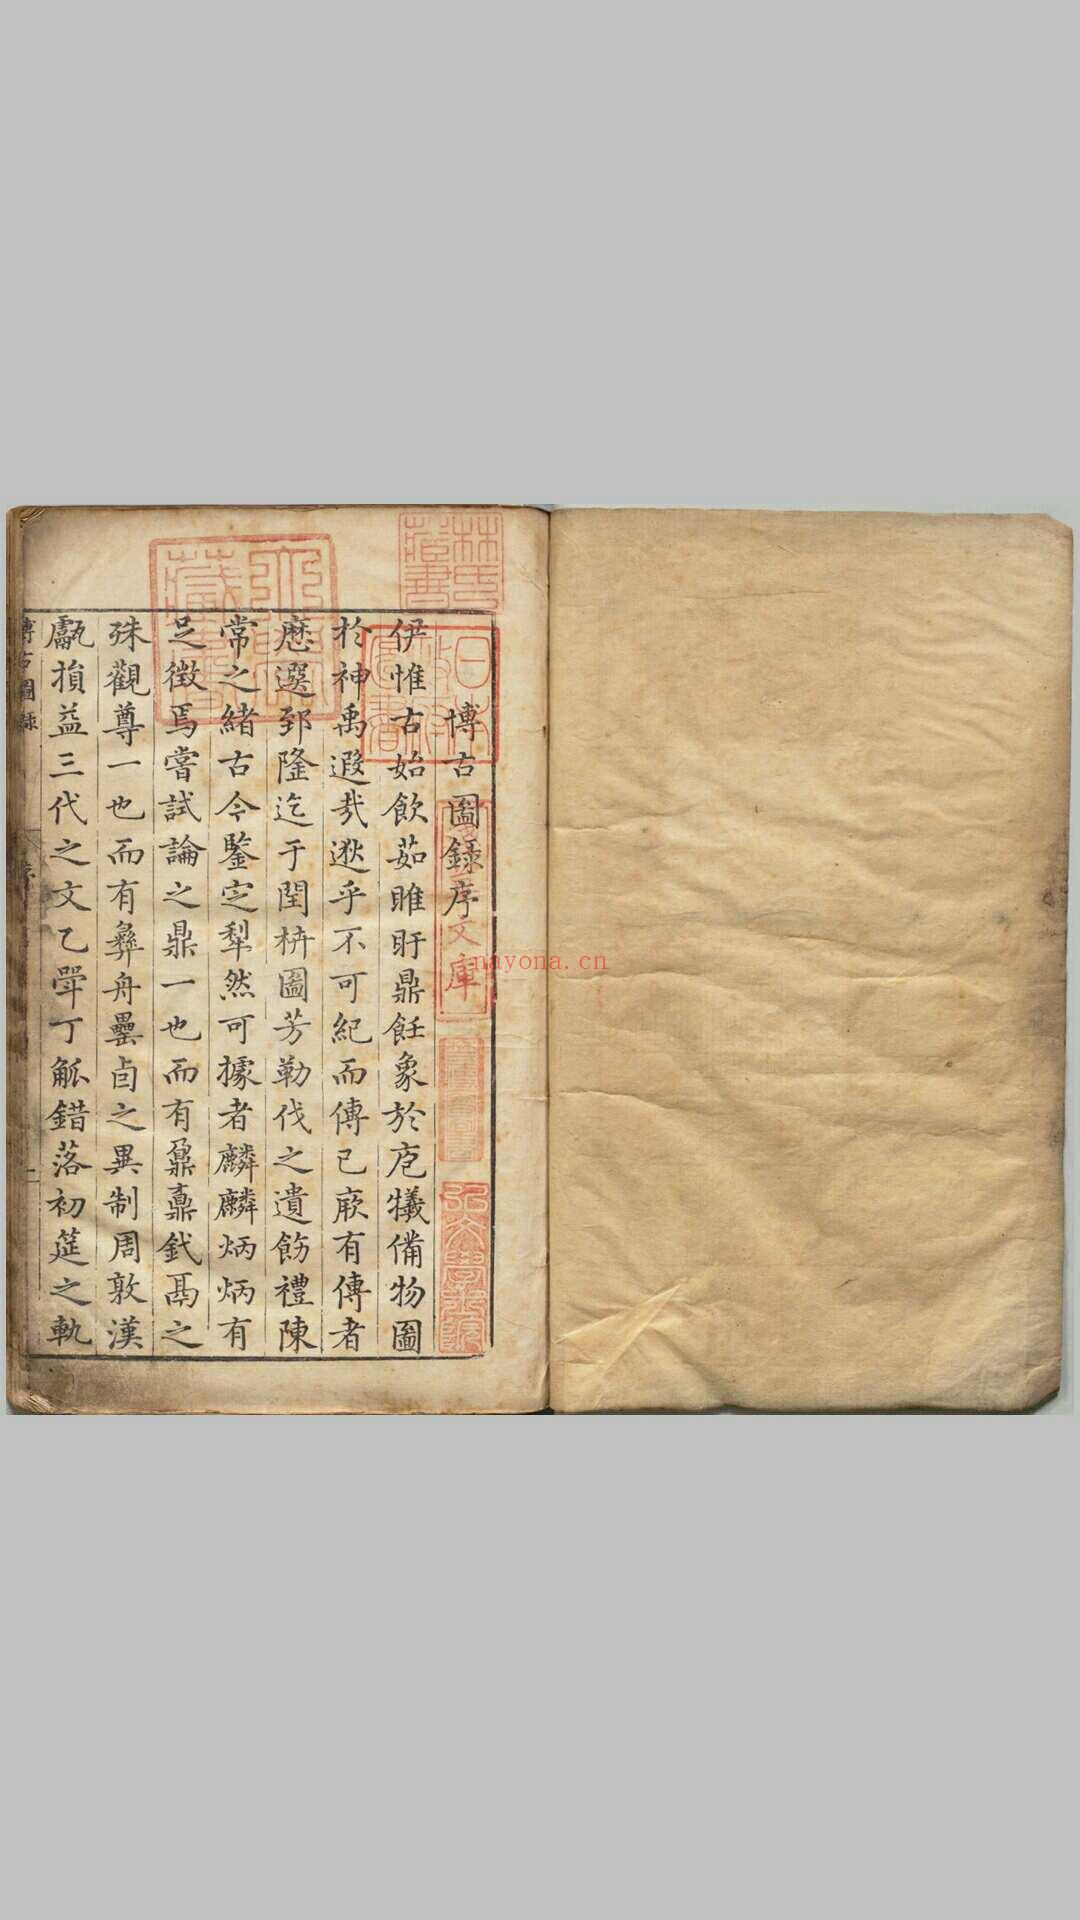 博古圖錄序
伊惟古始飲茹睢盱鼎飪象於庖犧備物圖
於神禹遐哉逖乎不可紀而傳已厥有傳者
歷選郅隆迄于閏枿圖芳勒伐之遺飭禮陳
常之緒古今鑒定犁然可據者麟麟炳炳有
足徵焉嘗試論之鼎一也而有鼐鼒釴鬲之
殊觀尊一也而有彝舟罍卣之異制周敦漢
甗損益三代之文乙斝丁觚錯落初筵之軌
博古圖錄
林氏藏書
日本政府圖書
文庫
弘文學士院
nayona.cn